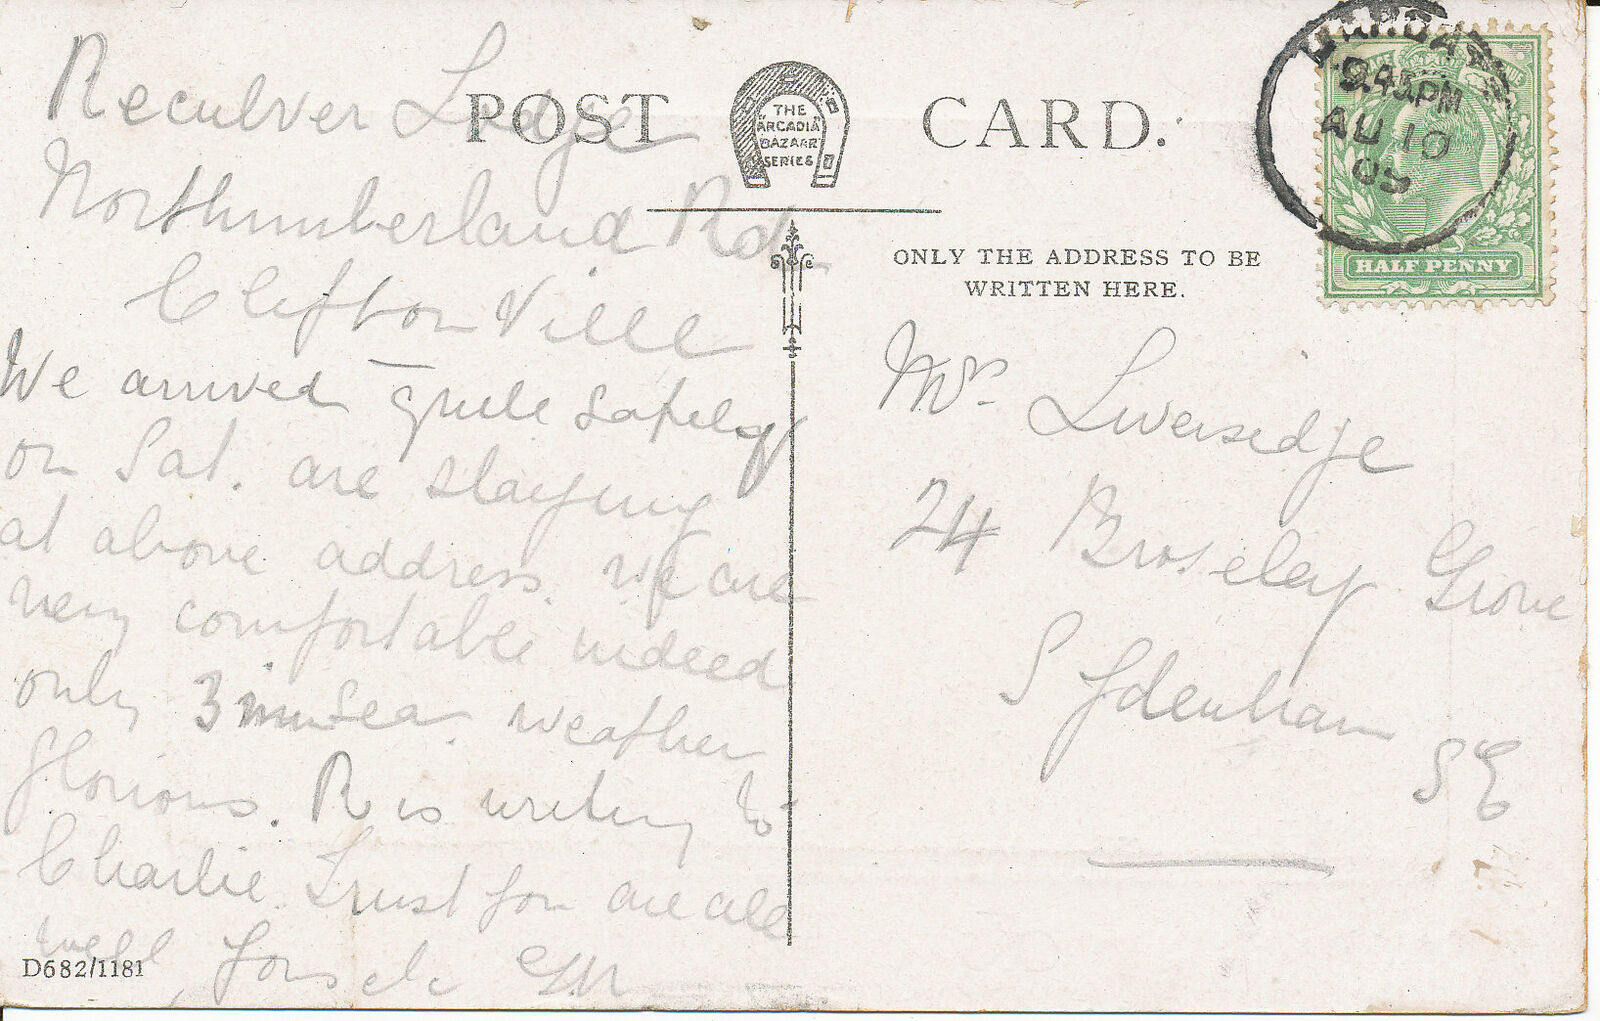 POST CARD.
THE
"ARCADIA"
BAZAAR
SERIES
ONLY THE ADDRESS TO BE
WRITTEN HERE.
9.45PM
AU 10
09
HALF PENNY
Reculver Lodge
Northumberland Rd
Clifton Ville
We arrived quite safely
on Sat. are staying
at above address. We are
very comfortable indeed
only 3 min sea. weather
glorious. R is writing to
Charlie Trust you are all
well
D682/1181
Mrs Liversedge
24 Broseley Grove
Sydenham
SE